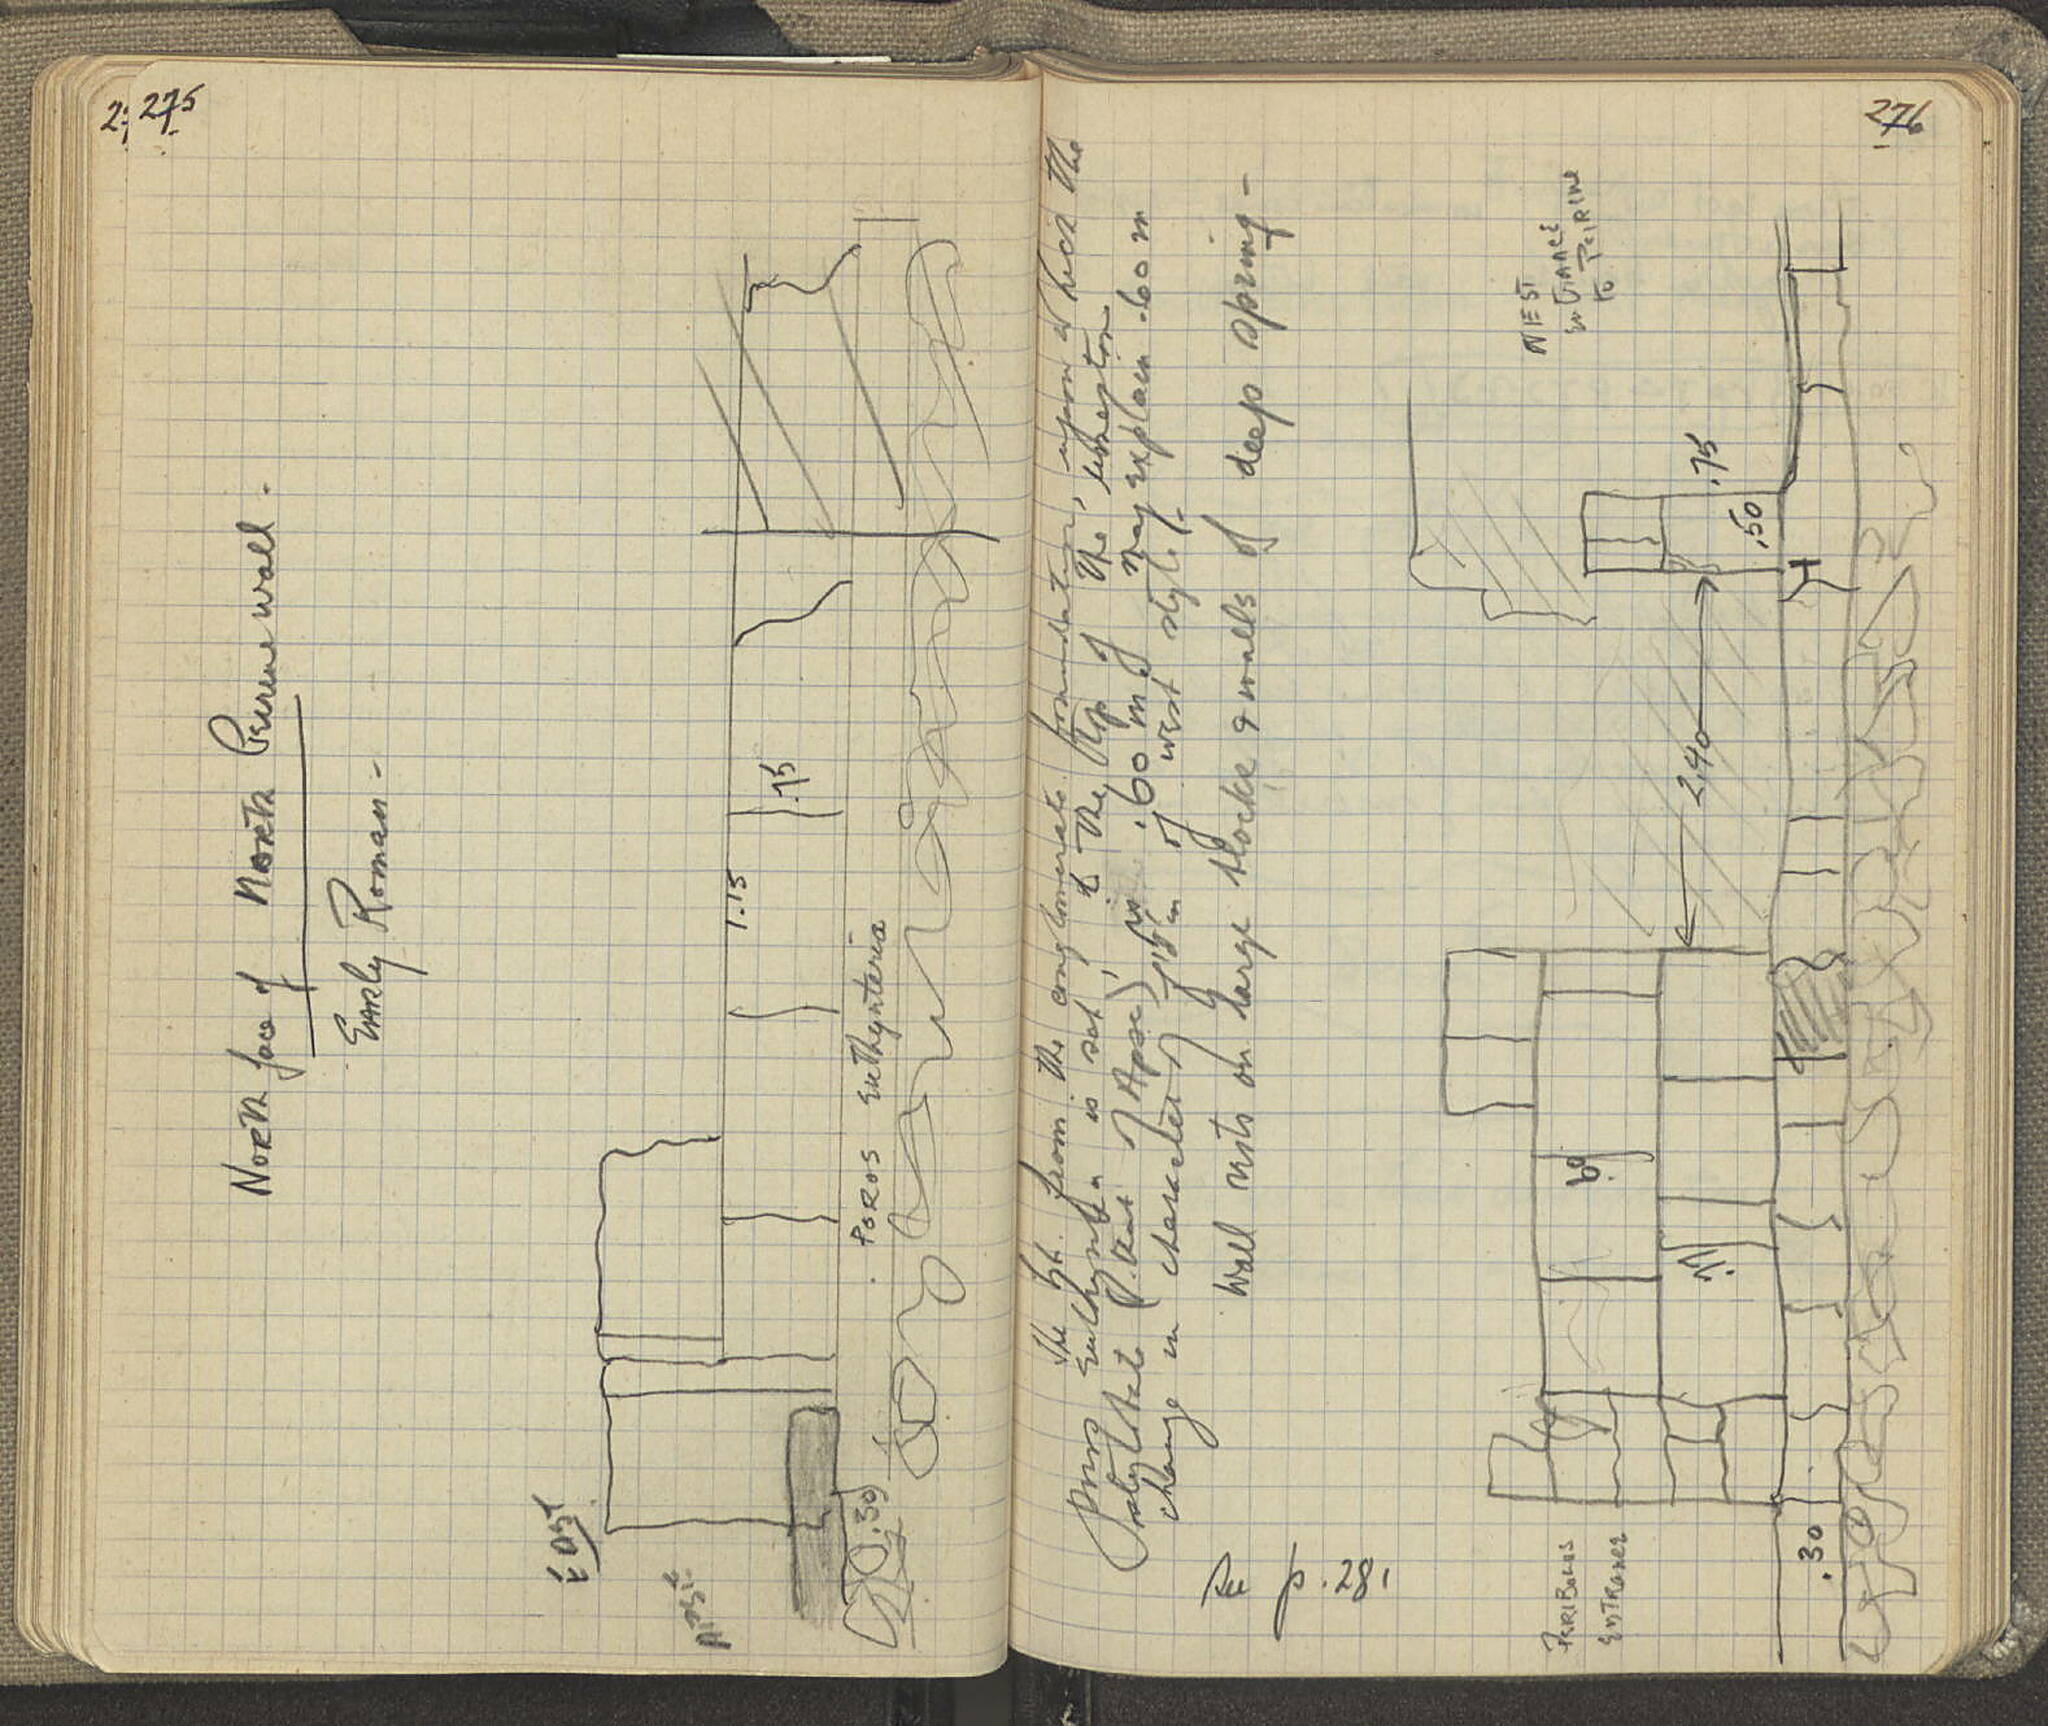 275
276
North face of North Peirene wall.
Early Roman -
East
Apse
1.15
.75
Poros Euthynteria
.30
The ht. from the conglomerate foundation, upon which the
Poros Euthynteria is set, to the top of the
stylobate (P. East of Apse) is .60 m & may explain .60 m
change in character 15 m of west style.
Wall rests on large blocks & walls of deep spring -
See p. 281
Peribolos
Entrance
West
Entrance
to Peirene
2.40
.75
.50
.60
.30